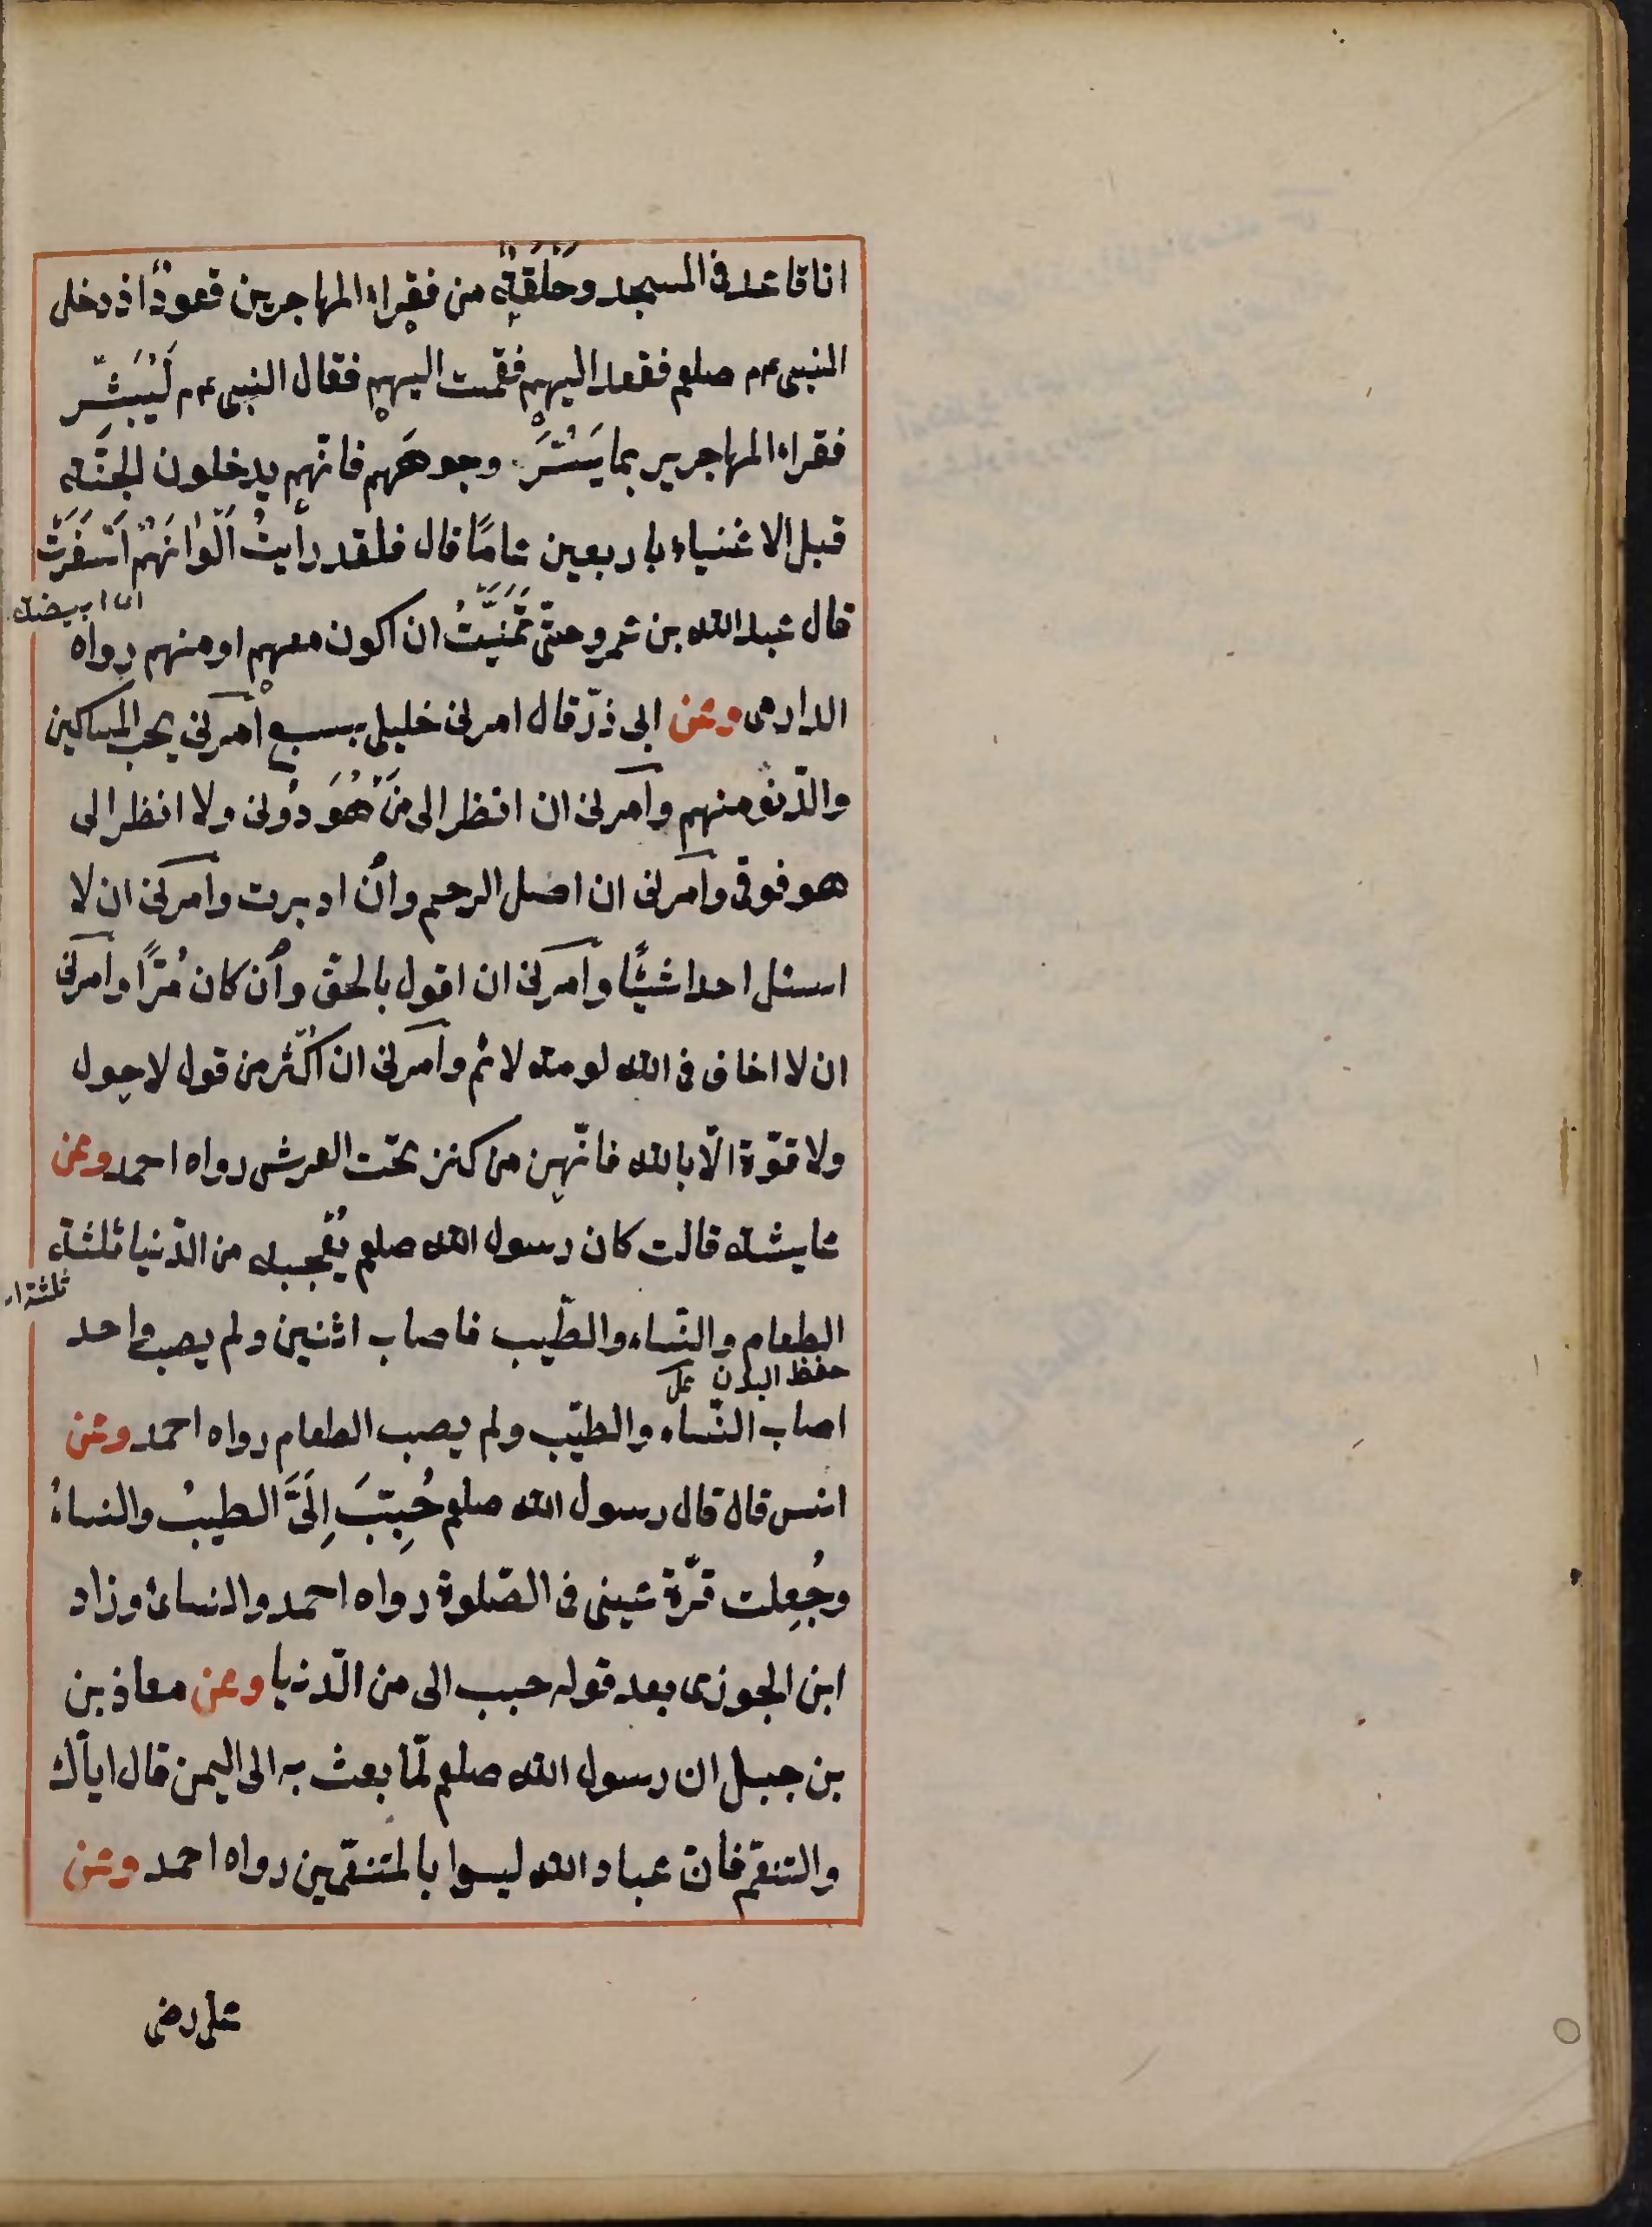 انا قاعد فى المسجد وحَلْقَةٌ من فقراء المهاجرين قعودٌ اذ دخل
النبى ءم صلعم فقعد اليهم فقمت اليهم فقال النبى ءم لَيُبَشِّر
فقراء المهاجرير بما يَسُرَّ وجوهَهم فانّهم يدخلون الجنّة
قبل الاغنياء باربعين عامًا قال فلقد رأيتُ اَلْوانَهُم اَسْفَرَتْ
اى ابيضت
قال عبد الله بن عمرو حتّى تَمَنَّيْتُ ان اكون معهم او منهم رواه
الدارمى وعن ابى ذرّ قال امرنى خليلى بسبع اَمرنى بحب المساكين
والدّنو منهم وآمرنى ان انظر الى مَنْ هُوَ دُونى ولا انظر الى
هو فوقى وآمرنى ان اصل الرحم واِن ادبرت وآمرنى ان لا
اسئل احدا شيئًا وآمرنى ان اقول بالحقّ واِن كان مُرًّا وآمرنى
ان لا اخاف فى الله لومة لائم وآمرنى ان اكثر من قول لا حول
ولا قوّة الّا بالله فانّهن من كنز تحت العرش رواه احمد وعن
عايشة قالت كان رسول الله صلعم يُعْجبه من الدّنيا ثلثة
ثلثة
الطعام والنّساء والطّيب فاصاب اثنين ولم يصب واحد
حفظ البدن
اصاب النّساء والطيّب ولم يصب الطعام رواه احمد وعن
انس قال قال رسول الله صلعم حُبِّبَ اِلَىَّ الطيبُ والنساءُ
وجُعِلت قرّة عينى فى الصّلوة رواه احمد والنسائ وزاد
ابن الجوزى بعد قوله حبب الى من الدّنيا وعن معاذ بن
بن جبل ان رسول الله صلعم لمّا بعث به الى اليمن قال ايّاك
والتنعّم فانّ عباد الله ليسوا بالمتنعّمين رواه احمد وعن
على رضى